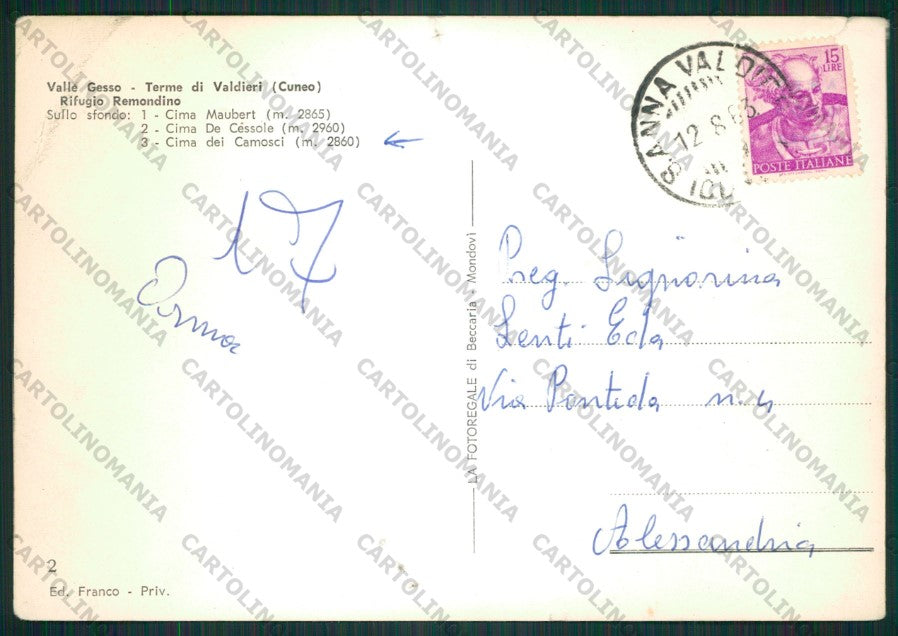 Valle Gesso - Terme di Valdieri (Cuneo)
Rifugio Remondino
Sullo sfondo: 1 - Cima Maubert (m. 2865)
2 - Cima De Céssole (m. 2960)
3 - Cima dei Camosci (m. 2860)
17
LA FOTOREGALE di Beccaria - Mondovì
S. ANNA VALDIERI
12.8.63
15
LIRE
POSTE ITALIANE
Preg. Signorina
Lenti Eda
Via Pontida n. 4
Alessandria
2
Ed. Franco - Priv.
CARTOLINOMANIA